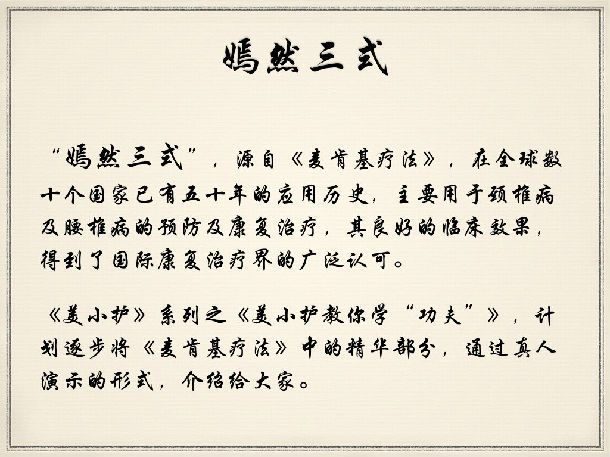 嫣然三式
“嫣然三式”，源自《麦肯基疗法》，在全球数
十个国家已有五十年的应用历史，主要用于颈椎病
及腰椎病的预防及康复治疗，其良好的临床效果，
得到了国际康复治疗界的广泛认可。
《美小护》系列之《美小护教你学“功夫”》，计
划逐步将《麦肯基疗法》中的精华部分，通过真人
演示的形式，介绍给大家。